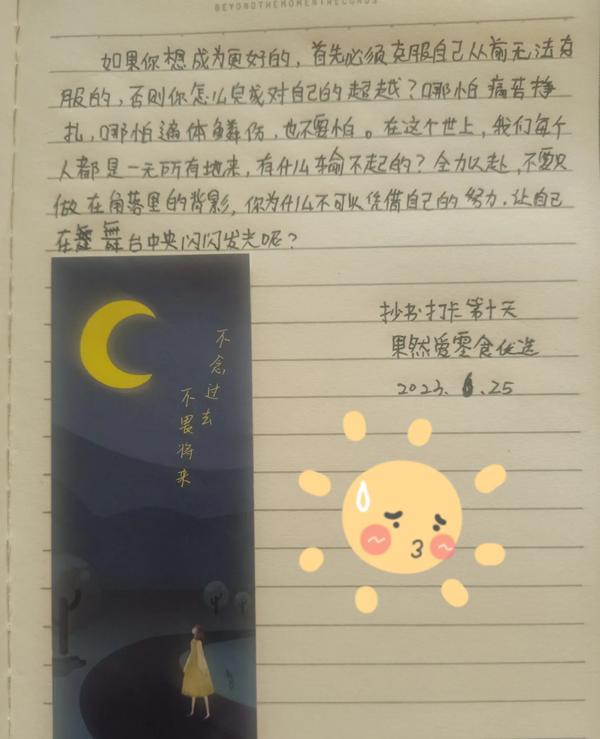 BEYONDTHEMOMENTRECORDS
如果你想成为更好的，首先必须克服自己从前无法克
服的，否则你怎么完成对自己的超越？哪怕痛苦挣
扎，哪怕遍体鳞伤，也不要怕。在这个世上，我们每个
人都是一无所有地来，有什么输不起的？全力以赴，不要只
做在角落里的背影，你为什么不可以凭借自己的努力，让自己
在舞台中央闪闪发光呢？
抄书打卡第十天
果然爱零食优选
2023.6.25
不念过去
不畏将来